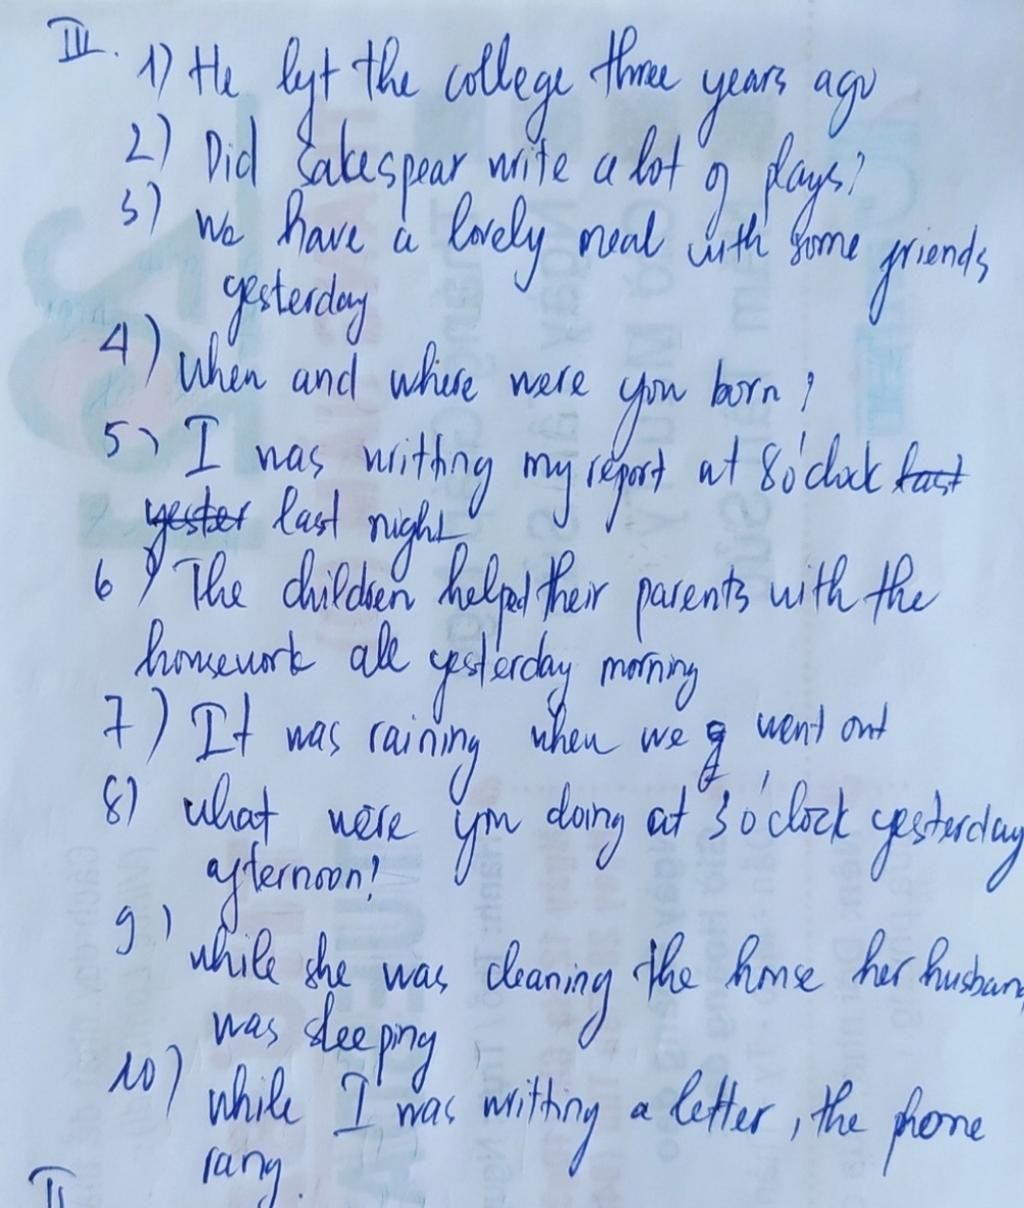 III. 1) He lyt the college three years ago
2) Did Sakespear write a lot of plays?
3) We have a lovely meal with some friends
yesterday
4) When and where were you born?
5) I was writting my report at 8 o'clock last
yester last night
6) The children helped their parents with the
housework all yesterday morning
7) It was raining when we g went out
8) what were you doing at 3 o'clock yesterday
afternoon?
9) while she was cleaning the house her husban
was sleeping
10) while I was writting a letter, the phone
rang.
II